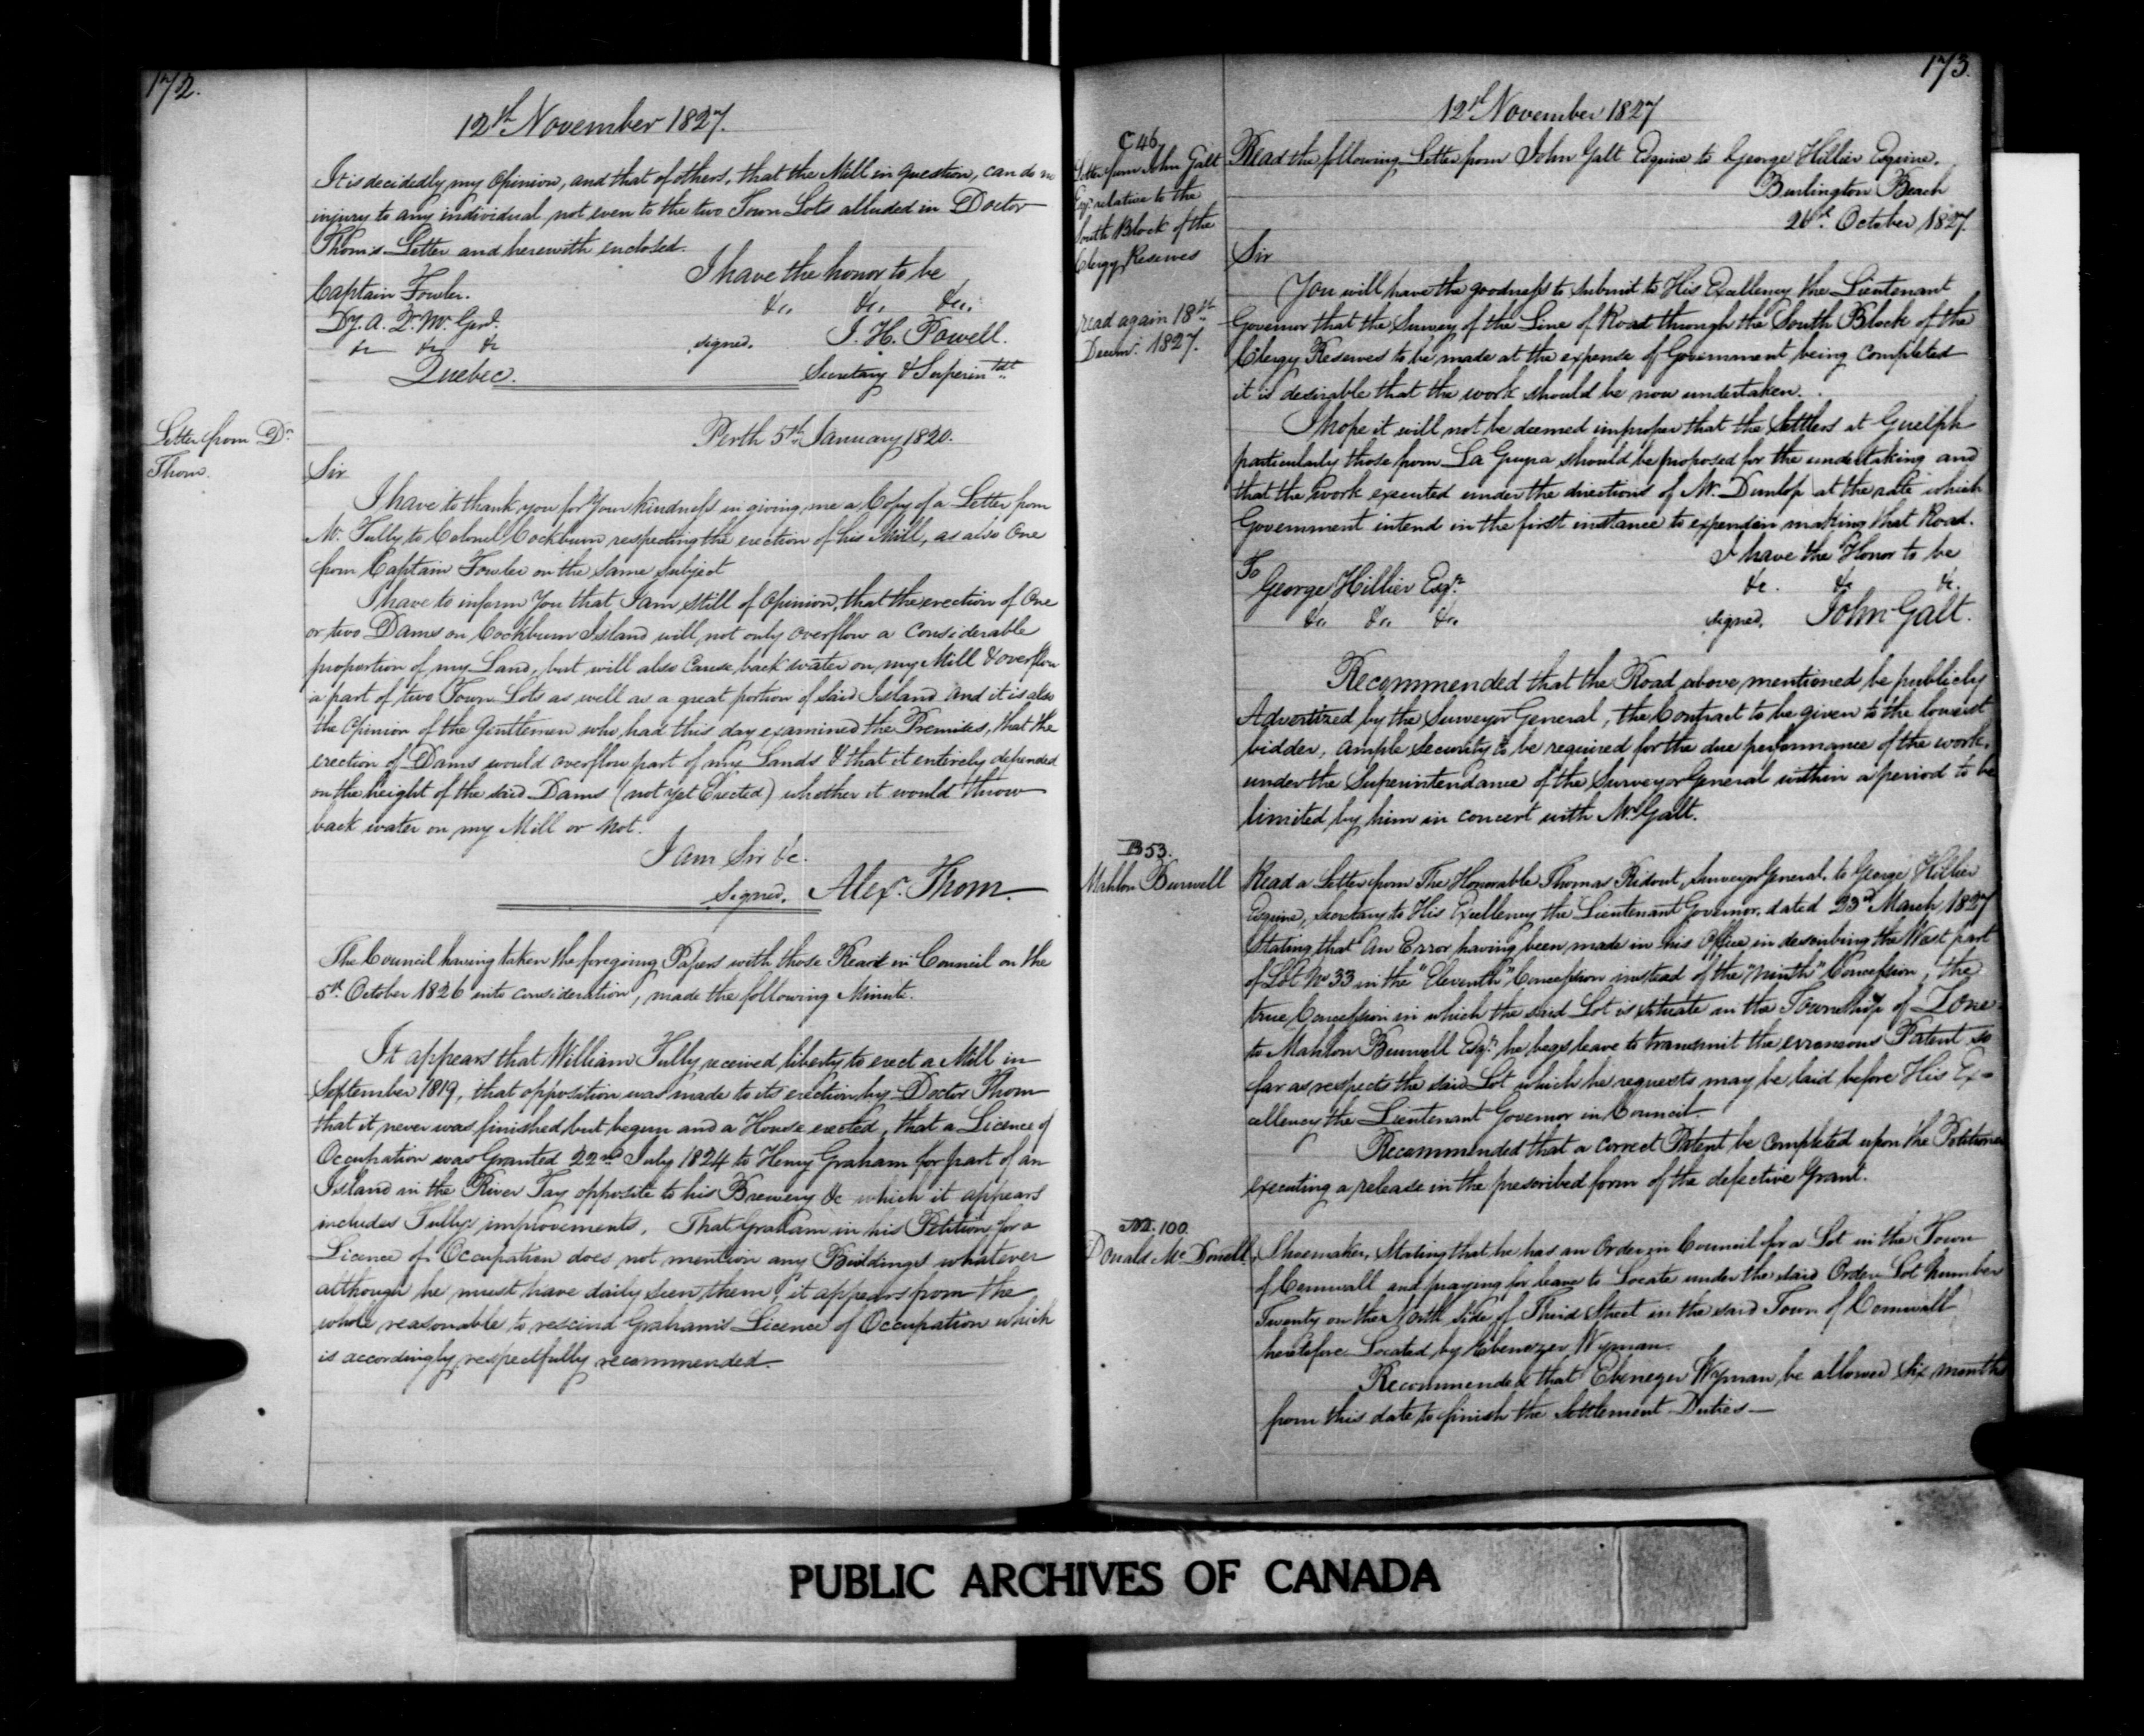 172.
12th November 1827.
It is decidedly my Opinion, and that of others, that the Mill in question, can do no
injury to any individual not even to the two Town Lots alluded in Doctor
Thom's Letter and herewith enclosed.
I have the honor to be
&c, &c, &c,
Captain Fowler.
Dy. A. Q. M. Genl.
&c &c &c
Quebec.
signed. J. H. Powell.
Secretary & Superintdt
Letter from Dr
Thom.
Perth 5th January 1820.
Sir
I have to thank you for Your kindness in giving me a Copy of a Letter from
Mr. Fully to Colonel Cockburn respecting the erection of his Mill, as also One
from Captain Fowler on the same subject
I have to inform You that I am still of Opinion, that the erection of One
or two Dams on Cockburn Island will not only overflow a Considerable
proportion of my Land, but will also Cause back water on my Mill & overflow
a part of two Town Lots as well as a great portion of said Island and it is also
the Opinion of the Gentlemen who had this day examined the Premises, that the
erection of Dams would overflow part of my Lands & that it entirely depended
on the height of the said Dams (not yet Erected) whether it would throw
back water on my Mill or not.
I am Sir &c.
Signed, Alexr. Thom.
The Council having taken the foregoing Papers with those Read in Council on the
5th October 1826 into consideration, made the following Minute.
It appears that William Fully received liberty to erect a Mill in
September 1819, that opposition was made to its erection by Doctor Thom
that it never was finished but begun and a House erected, that a Licence of
Occupation was Granted 22nd July 1824 to Henry Graham for part of an
Island in the River Tay opposite to his Brewery &c which it appears
includes Fullys improvements. That Graham in his Petition for a
Licence of Occupation does not mention any Buildings whatever
although he must have daily seen them, it appears from the
whole reasonable to rescind Graham's Licence of Occupation which
is accordingly respectfully recommended.
173.
12th November 1827
C 46
Letter from John Galt
Esqr. relative to the
South Block of the
Clergy Reserves
read again 18th
Decemr. 1827.
Read the following Letter from John Galt Esquire to George Hillier Esquire.
Burlington Beach
October 1827.
Sir
You will have the goodness to submit to His Excellency the Lieutenant
Governor that the Survey of the Line of Road through the South Block of the
Clergy Reserves to be made at the expense of Government being Completed
it is desirable that the work should be now undertaken.
I hope it will not be deemed improper that the Settlers at Guelph
particularly those from La Guyra should be proposed for the undertaking and
that the work executed under the directions of Mr. Dunlop at the rate which
Government intend in the first instance to expend in making that Road.
I have the Honor to be
&c. &c &c.
To
George Hillier Esqr.
&c, &c, &c,
signed, John Galt.
Recommended that the Road above mentioned be publicly
Advertized by the Surveyor General, the Contract to be given to the lowest
bidder, ample security to be required for the due performance of the work,
under the Superintendance of the Surveyor General within a period to be
limited by him in concert with Mr. Galt.
B 53.
Mahlon Burwell
Read a Letter from The Honorable Thomas Ridout, Surveyor General, to George Hillier
Esquire, Secretary to His Excellency the Lieutenant Governor, dated 23rd March 1827
Stating that An Error having been made in his Office in describing the West part
of Lot No 33 in the "Eleventh" Concession instead of the "Ninth" Concession, the
true Concession in which the said Lot is situate in the Township of Zone
to Mahlon Burwell Esqr. he begs leave to transmit the erroneous Patent so
far as respects the said Lot which he requests may be laid before His Ex=
cellency the Lieutenant Governor in Council.
Recommended that a correct Patent be completed upon the Petitioner
executing a release in the prescribed form of the defective Grant.
M. 100.
Donald Mc Donell.
Shoemaker, Stating that he has an Order in Council for a Lot in the Town
of Cornwall and praying for leave to Locate under the said Order Lot Number
Twenty on the North side of Third Street in the said Town of Cornwall
heretofore Located by Ebenezer Wyman.
Recommended that Ebenezer Wyman, be allowed Six months
from this date to finish the Settlement Duties—
PUBLIC ARCHIVES OF CANADA